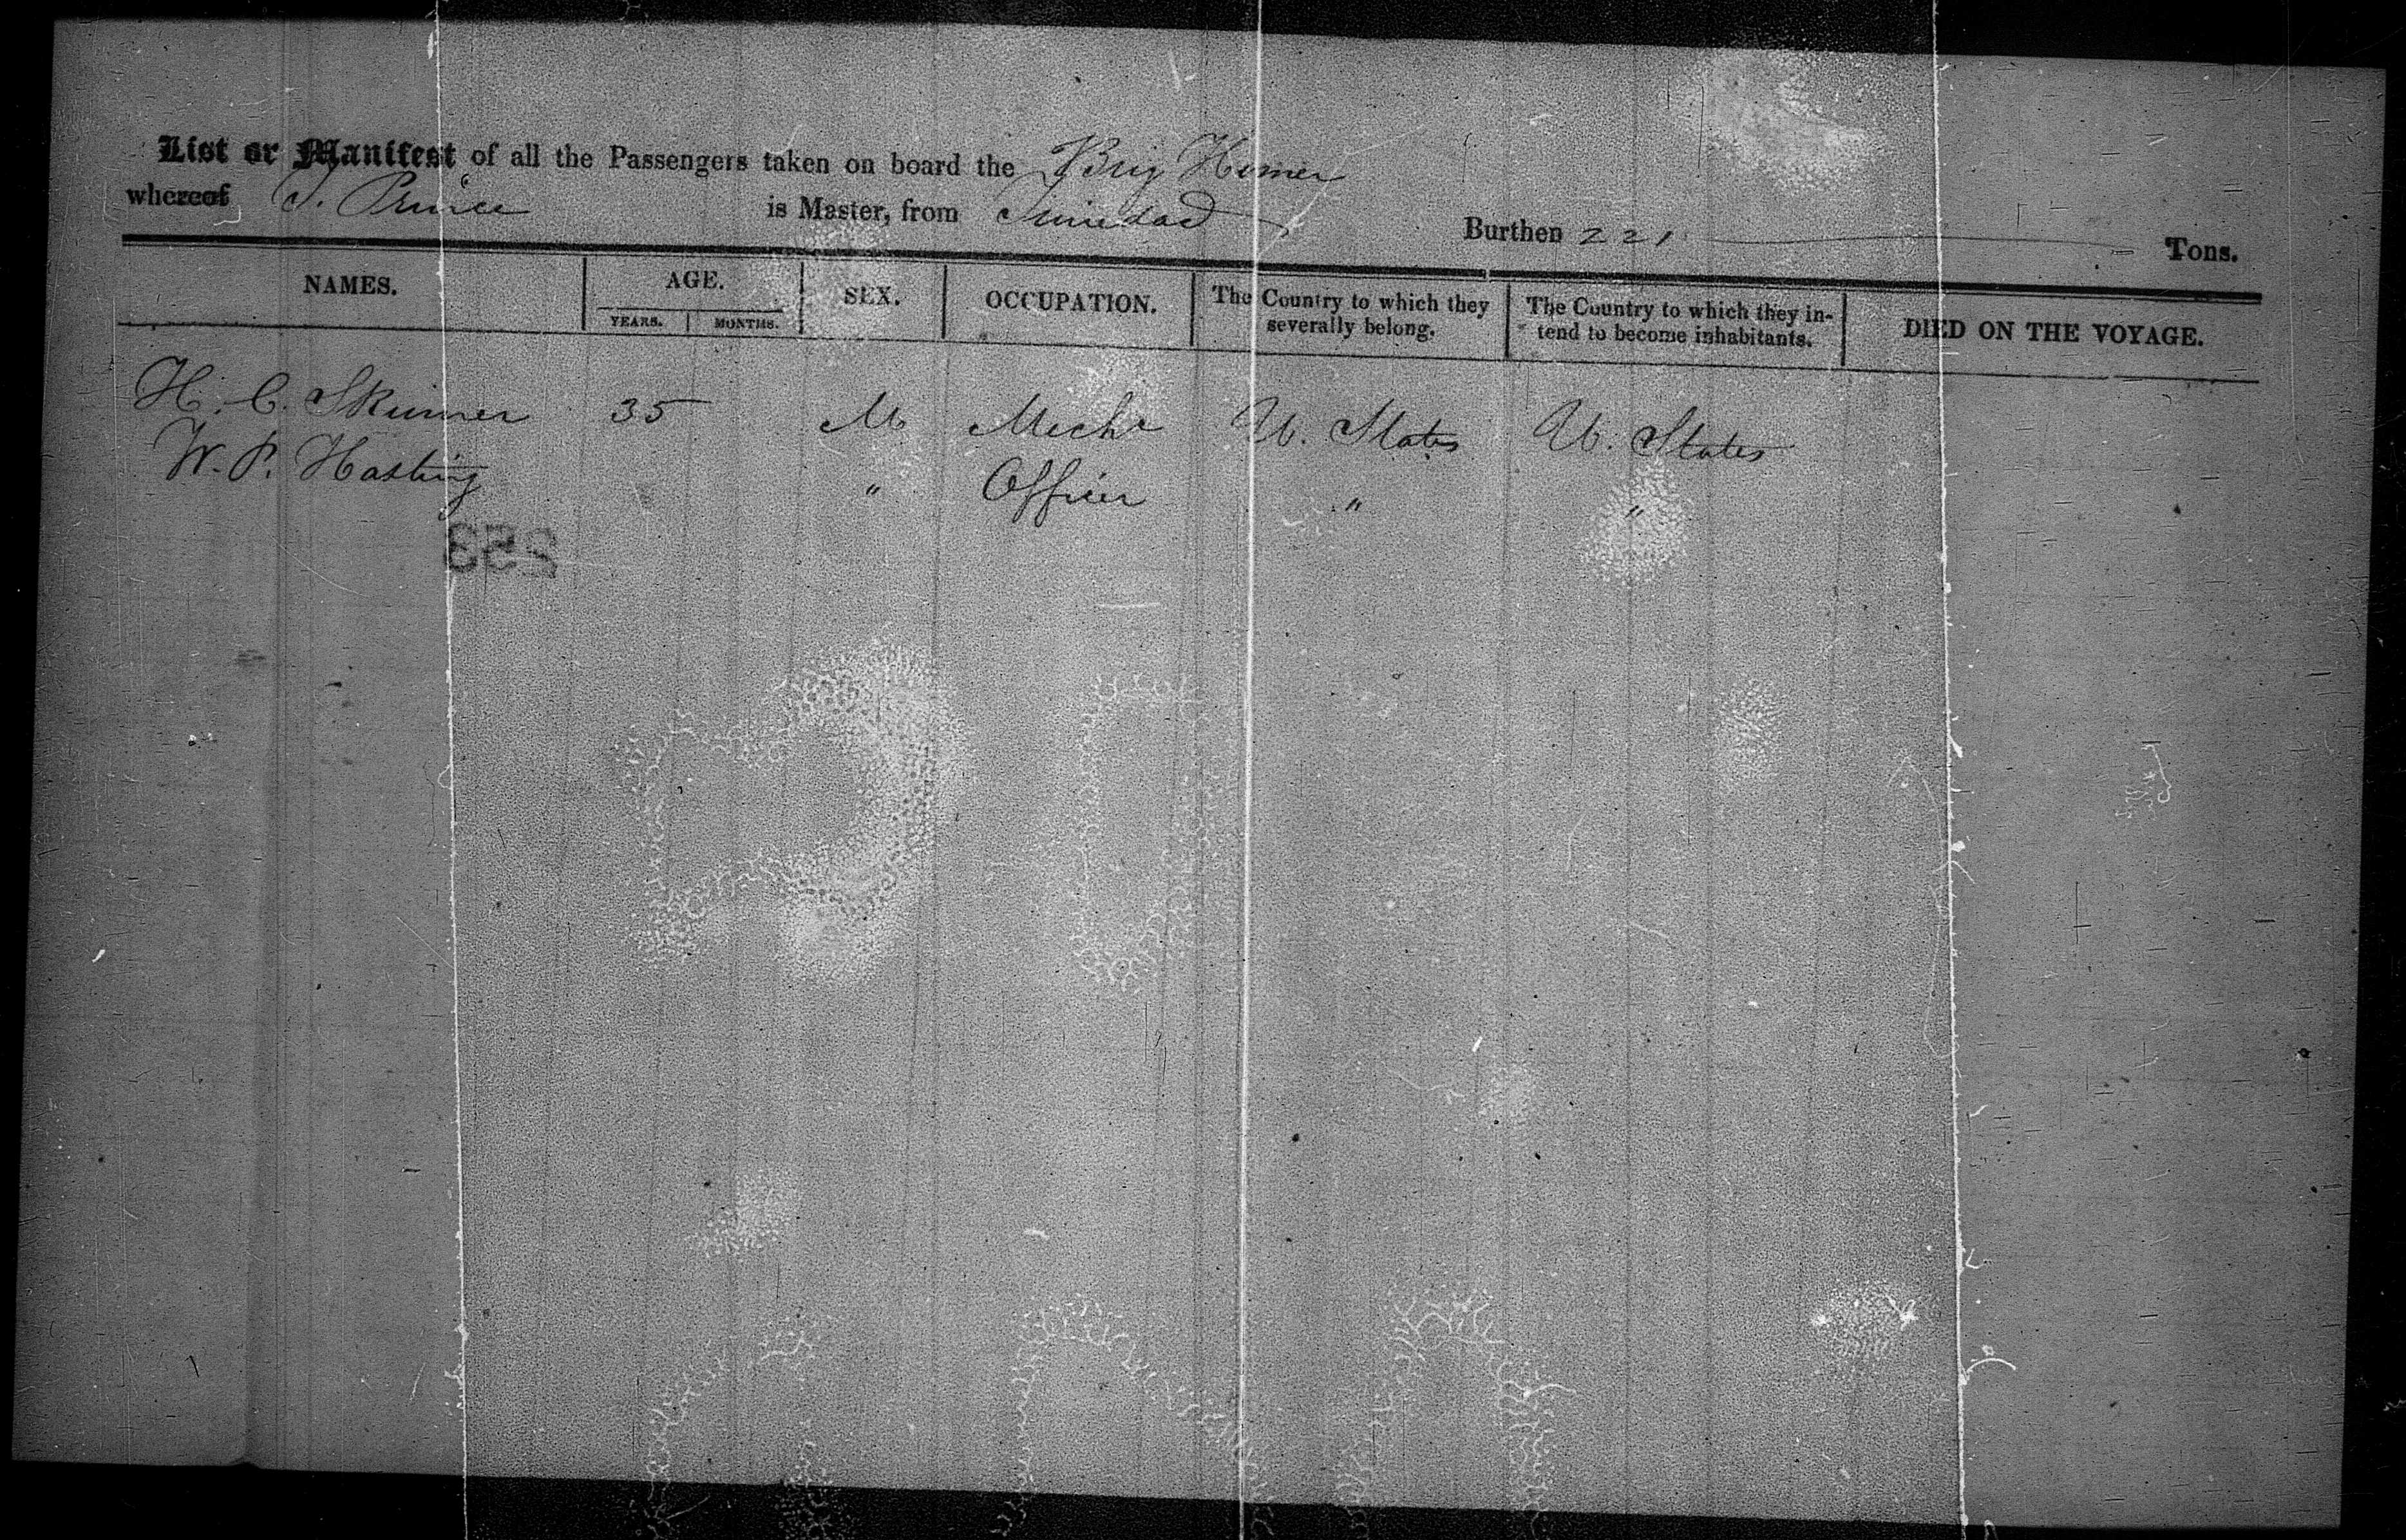 List or Manifest of all the Passengers taken on board the Brig Homer
whereof J. Prince is Master, from Trinidad Burthen 221 Tons.
NAMES. AGE. SEX. OCCUPATION. The Country to which they severally belong. The Country to which they in-tend to become inhabitants. DIED ON THE VOYAGE.
YEARS. MONTHS.
H. C. Skinner 35 M Mechc U. States U. States
W. P. Hasting " Officer " "
253